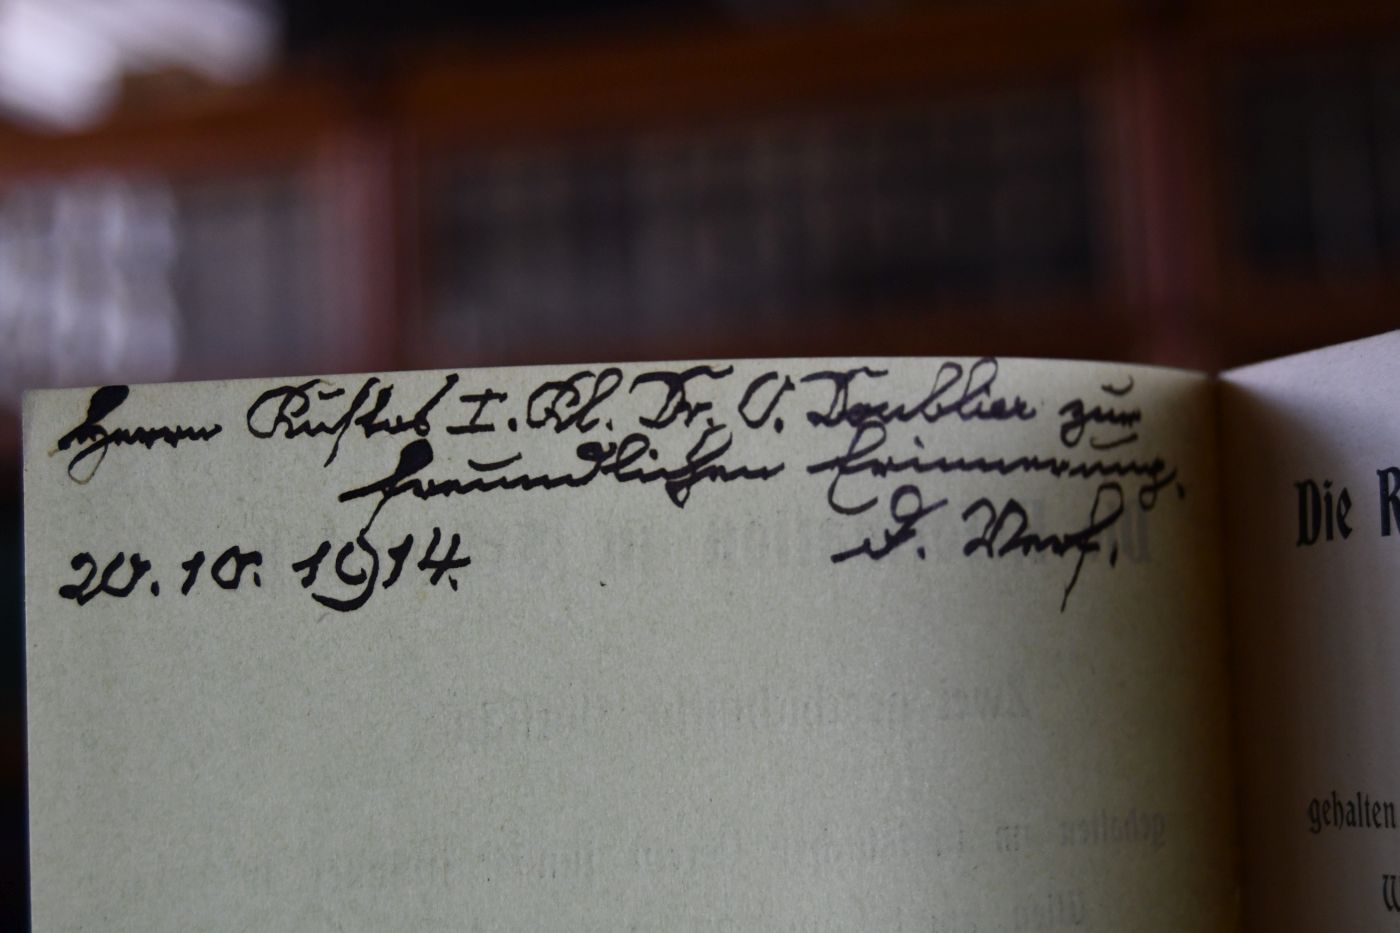 Herrn Kustos I. Kl. Dr. O. Doublier zur
freundlichen Erinnerung.
20. 10. 1914. D. Verf.
Die
gehalten